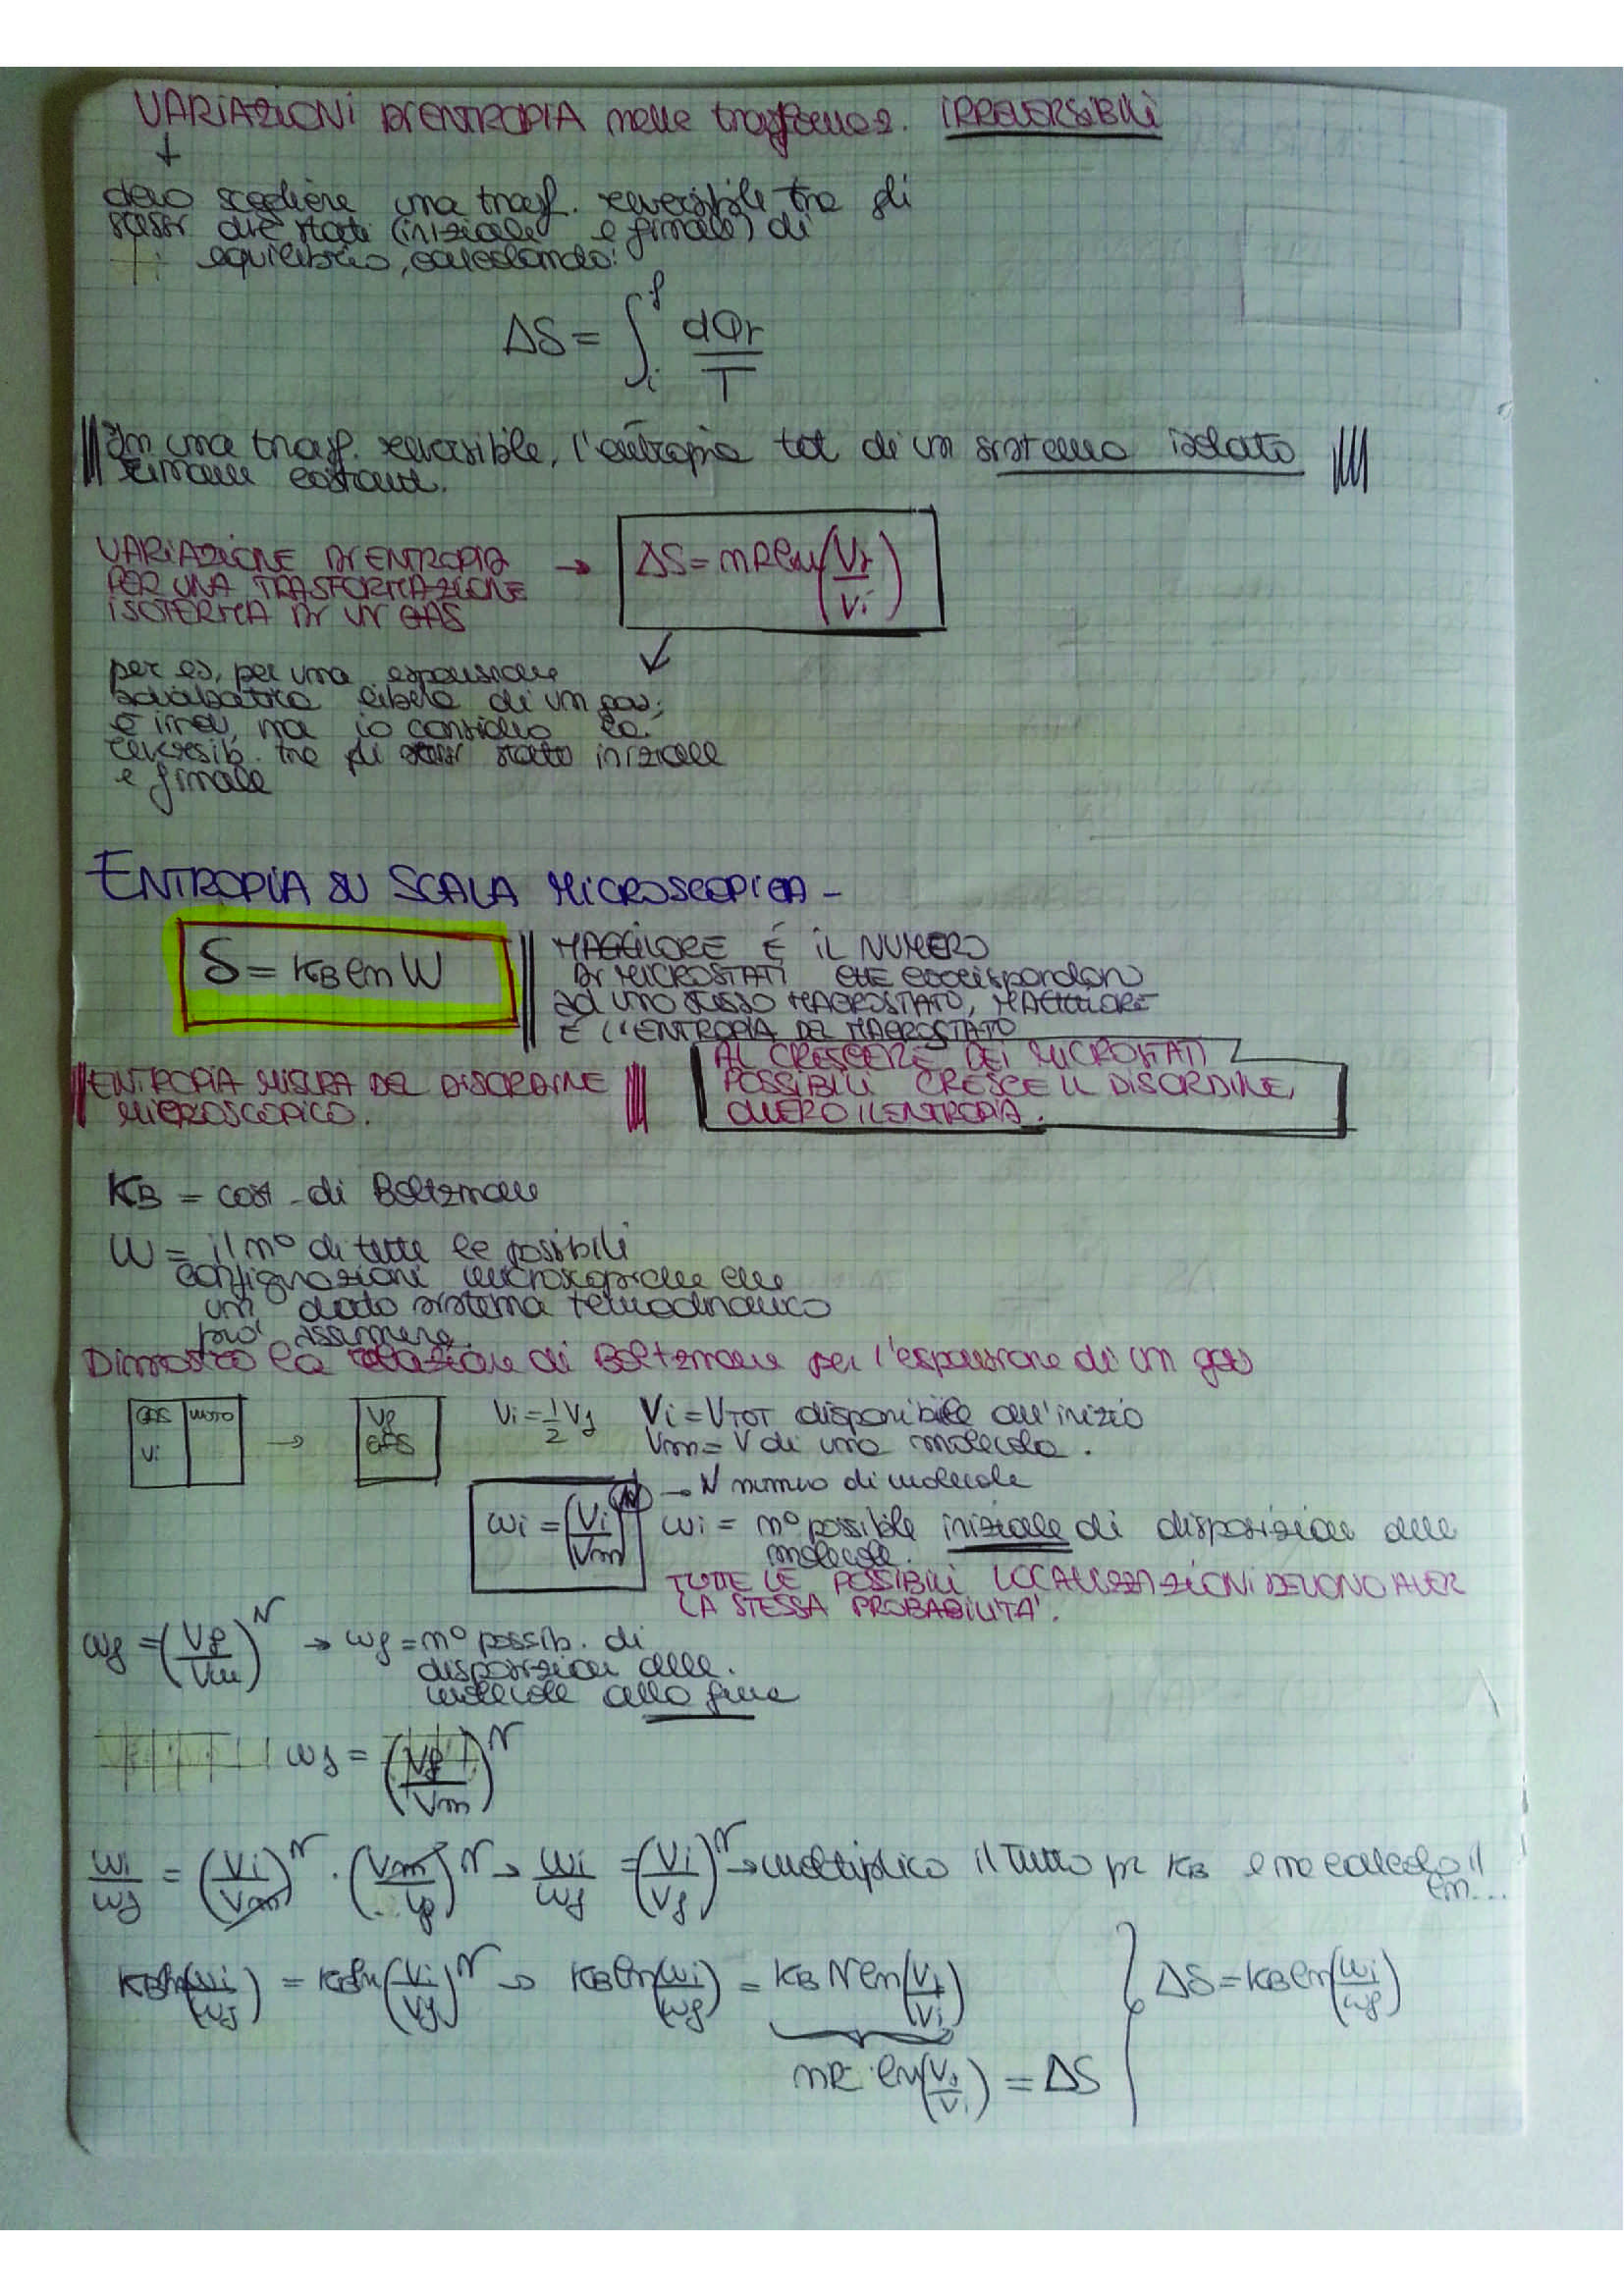 VARIAZIONI DI ENTROPIA nelle trasformaz. IRREVERSIBILI
↓
devo scegliere una trasf. reversibile tra gli
stessi due stati (iniziale e finale) di
equilibrio, calcolando:
ΔS = ∫_i^f dQr/T
In una trasf. reversibile, l'entropia tot di un sistema isolato
rimane costante.
VARIAZIONE DI ENTROPIA
PER UNA TRASFORMAZIONE
ISOTERMA DI UN GAS
→ ΔS = nR ln(Vf/Vi)
per es, per una espansione
adiabatica libera di un gas,
è irrev, ma io considero la
reversib. tra gli stessi stato iniziale
e finale
ENTROPIA SU SCALA MICROSCOPICA -
S = KB ln W
MAGGIORE É IL NUMERO
DI MICROSTATI CHE corrispondono
ad uno STESSO MACROSTATO, MAGGIORE
È L'ENTROPIA DEL MACROSTATO
ENTROPIA MISURA DEL DISORDINE
MICROSCOPICO.
AL CRESCERE DEI MICROSTATI
POSSIBILI CRESCE IL DISORDINE,
OVVERO L'ENTROPIA.
KB = cost. di Boltzmann
W = il n° di tutte le possibili
configurazioni microscopiche che
un dato sistema termodinamico
può assumere.
Dimostro la relazione di Boltzmann per l'espansione di un gas
GAS Vi vuoto → Vf GAS
Vi = 1/2 Vf
Vi = VTOT disponibile all'inizio
Vm = V di una molecola.
→ N numero di molecole
wi = (Vi/Vm)^N
wi = n° possibile iniziale di disposizioni delle
molecole.
TUTTE LE POSSIBILI LOCALIZZAZIONI DEVONO AVER
LA STESSA PROBABILITA'.
wf = (Vf/Vm)^N → wf = n° possib. di
disposizioni delle
molecole alla fine
wf = (Vf/Vm)^N
wi/wf = (Vi/Vm)^N · (Vm/Vf)^N → wi/wf = (Vi/Vf)^N → moltiplico il tutto per KB e ne calcolo il
ln...
KB ln(wi/wf) = KB ln(Vi/Vf)^N → KB ln(wi/wf) = KB N ln(Vf/Vi)
ΔS = KB ln(wi/wf)
nR ln(Vf/Vi) = ΔS